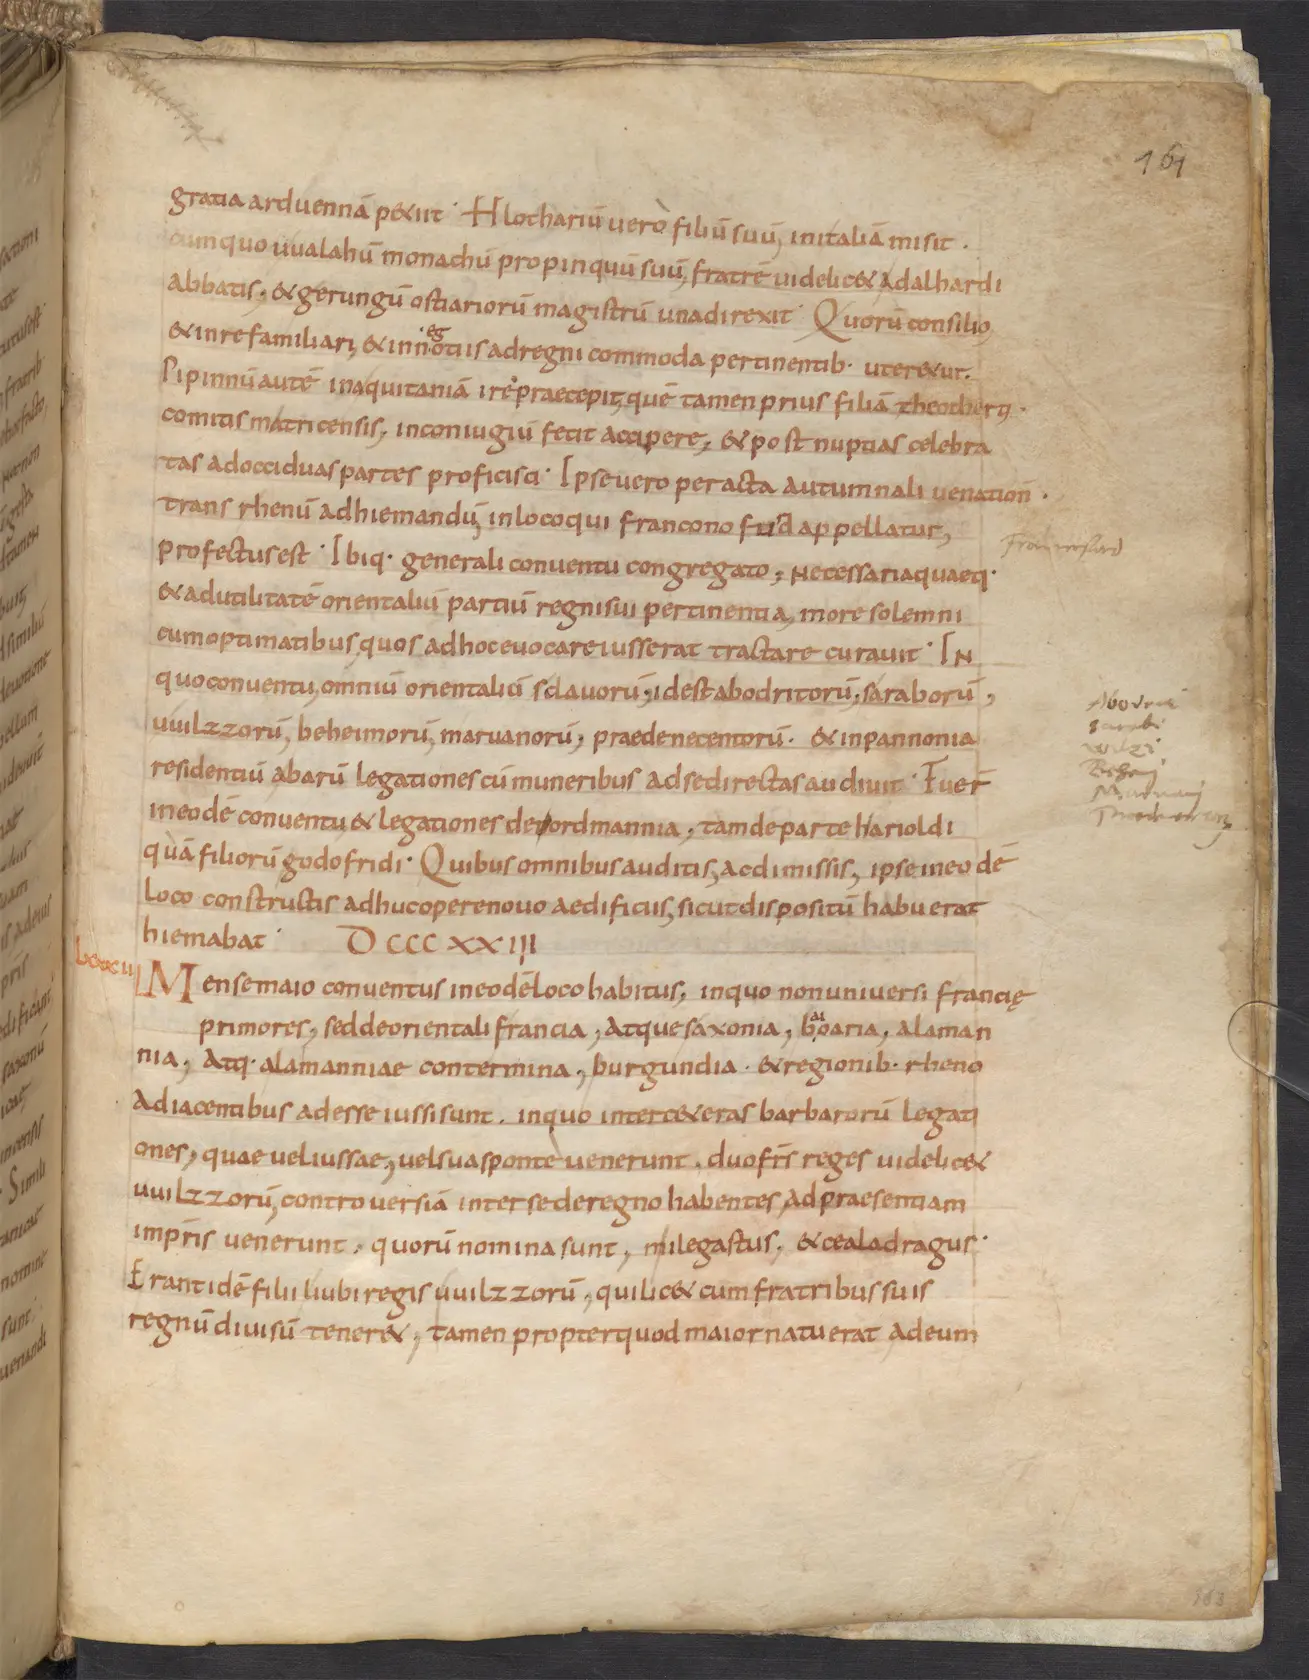 161
gratia arduennā petiit · Hlothariū vero filiū suū, in italiā misit ·
cum quo uualahū monachū propinquū suū, fratrē uidelicet adalhardi
abbatis, & gerungū ostiariorū magistrū una direxit · Quorū consilio,
& in re familiari, & in negotiis ad regni commoda pertinentib· uteretur.
Pipinnū autē in aquitaniā ire praecepit, quē tamen prius filiā theotberti ·
comitis matricensis, in coniugiū fecit accipere, & post nuptias celebra
tas ad occiduas partes proficisci · Ipse uero peracta autumnali uenation ·
trans rhenū ad hiemandū, in loco qui franconofurd appellatur,
profectus est · Ibiq· generali conuentu congregato, necessaria quaeq·
& ad utilitatē orientaliū partiū regni sui pertinentia, more solemni
cum optimatibus quos ad hoc euocare iusserat tractare curauit · In
quo conuentu, omniū orientaliū sclauorū, id est abodritorū, saraborū,
uuilzzorū, beheimorū, maruanorū, praedenecentorū · & in pannonia
residentiū abarū legationes cū muneribus ad se directas audiuit · Fuer̄
in eodē conuentu & legationes de nordmannia, tam de parte harioldi
quā filiorū godofridi · Quibus omnibus auditis, ac dimissis, ipse in eodē
loco constructis ad huc opere nouo aedificiis, sicut dispositū habuerat
hiemabat · DCCCXXIII
Mense maio conuentus in eodē loco habitus, in quo non uniuersi francię
primores, sed de orientali francia, atque saxonia, baioaria, alaman
nia, atq· alamanniae contermina, burgundia · & regionib· rheno
adiacentibus adesse iussi sunt. in quo inter ceteras barbarorū legati
ones, quae uel iussae, uel sua sponte uenerunt, duo fr̄s reges uidelicet
uuilzzorū, controuersiā inter se de regno habentes, ad praesentiam
imp̄ris uenerunt, quorū nomina sunt, milegastus, & cealadragus ·
Erant idē filii liubi regis uuilzzorū, qui licet cum fratribus suis
regnū diuisū teneret, tamen propter quod maior natu erat ad eum